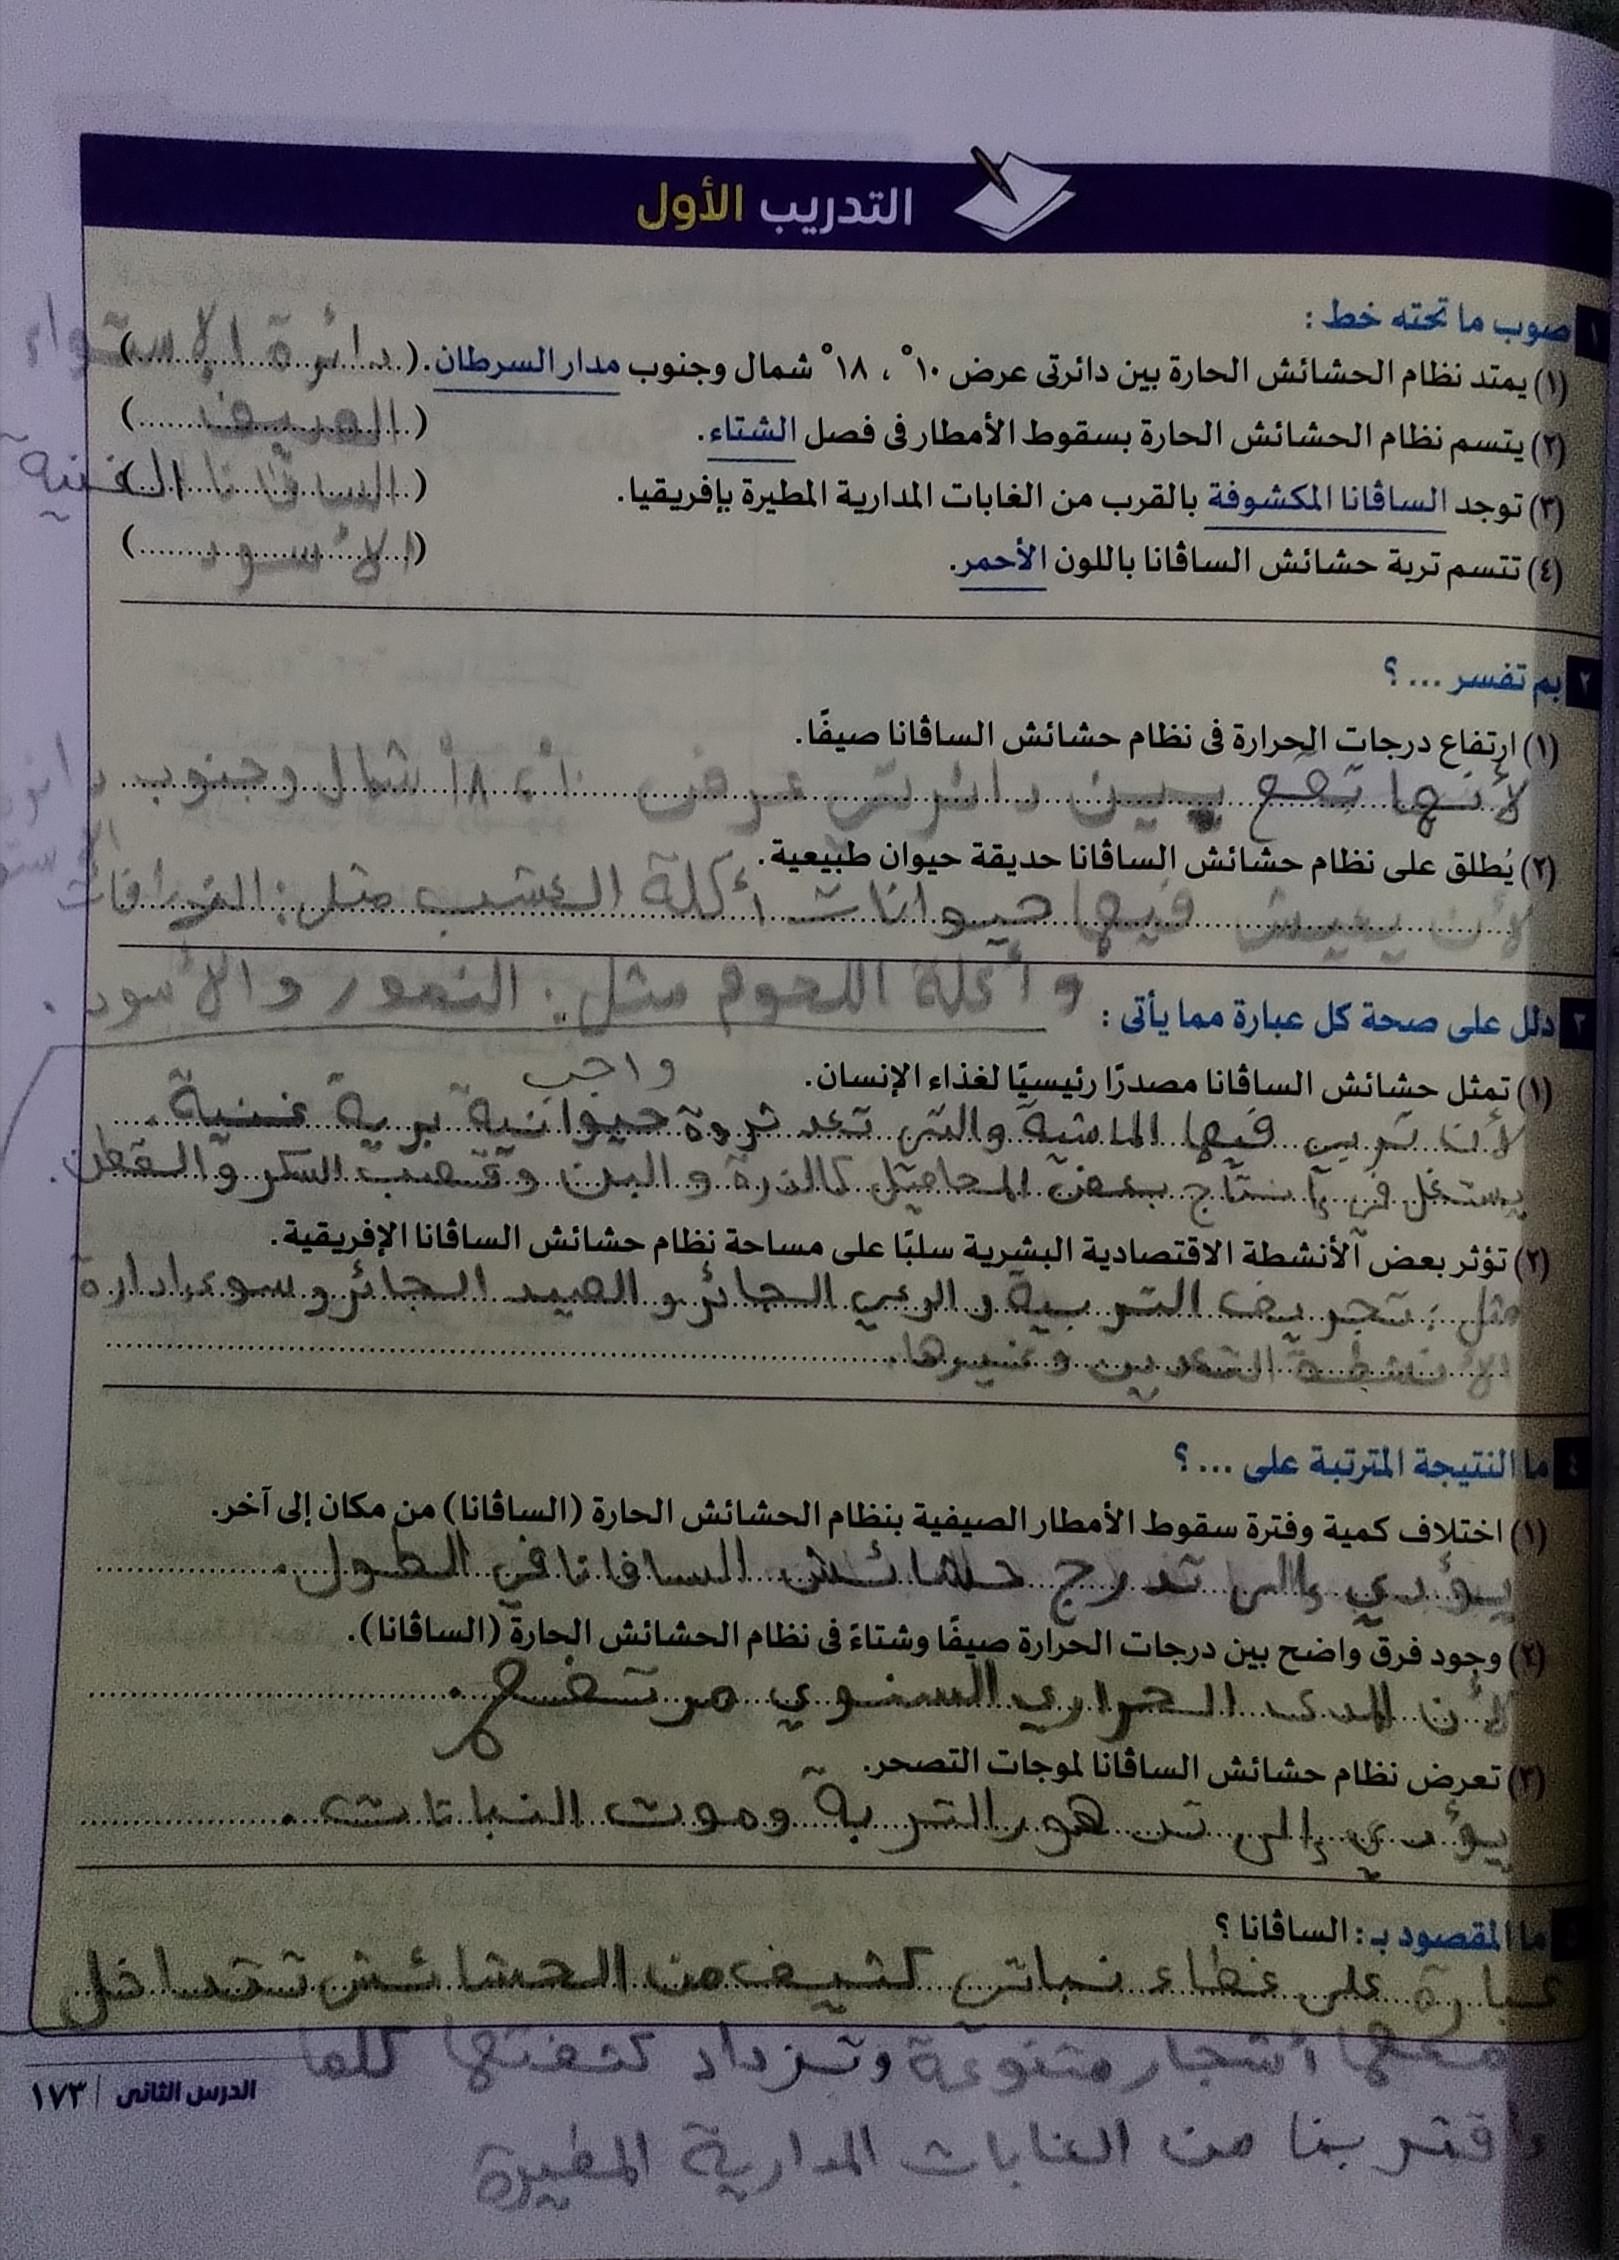 التدريب الأول
١ صوب ما تحته خط :
(١) يمتد نظام الحشائش الحارة بين دائرتى عرض ١٠°، ١٨° شمال وجنوب مدار السرطان. (دائرة الاستواء)
(٢) يتسم نظام الحشائش الحارة بسقوط الأمطار فى فصل الشتاء. (الصيف)
(٣) توجد الساڤانا المكشوفة بالقرب من الغابات المدارية المطيرة بإفريقيا. (الساڤانا الغنية)
(٤) تتسم تربة حشائش الساڤانا باللون الأحمر. (الأسود)
٢ بم تفسر ... ؟
(١) ارتفاع درجات الحرارة فى نظام حشائش الساڤانا صيفًا.
لأنها تقع بين دائرتى عرض ١٠°، ١٨° شمال وجنوب
(٢) يُطلق على نظام حشائش الساڤانا حديقة حيوان طبيعية.
لأن يعيش فيها حيوانات أكلة العشب مثل: الزرافات
وأكلة اللحوم مثل: النمور والأسود.
٣ دلل على صحة كل عبارة مما يأتى :
واجب
(١) تمثل حشائش الساڤانا مصدرًا رئيسيًا لغذاء الإنسان.
لأن تربى فيها الماشية والتى تعد ثروة حيوانية برية غنية.
يستغل فى إنتاج بعض المحاصيل كالذرة والبن وقصب السكر والقطن.
(٢) تؤثر بعض الأنشطة الاقتصادية البشرية سلبًا على مساحة نظام حشائش الساڤانا الإفريقية.
مثل: تجريف التربية والرعي الجائر والصيد الجائر وسوء إدارة
الأنشطة التعدين وغيرها.
٤ ما النتيجة المترتبة على ... ؟
(١) اختلاف كمية وفترة سقوط الأمطار الصيفية بنظام الحشائش الحارة (الساڤانا) من مكان إلى آخر.
يؤدي إلى تدرج حشائش السافانا في الطول.
(٢) وجود فرق واضح بين درجات الحرارة صيفًا وشتاءً فى نظام الحشائش الحارة (الساڤانا).
لأن المدى الحراري السنوي مرتفع.
(٣) تعرض نظام حشائش الساڤانا لموجات التصحر.
يؤدي إلى تدهور التربة وموت النباتات.
٥ ما المقصود بـ : الساڤانا ؟
عبارة على غطاء نباتى كثيف من الحشائش تتداخل
معها أشجار متنوعة وتزداد كثفتها كلما
اقتربنا من الغابات المدارية المطيرة
الدرس الثانى / ١٧٣